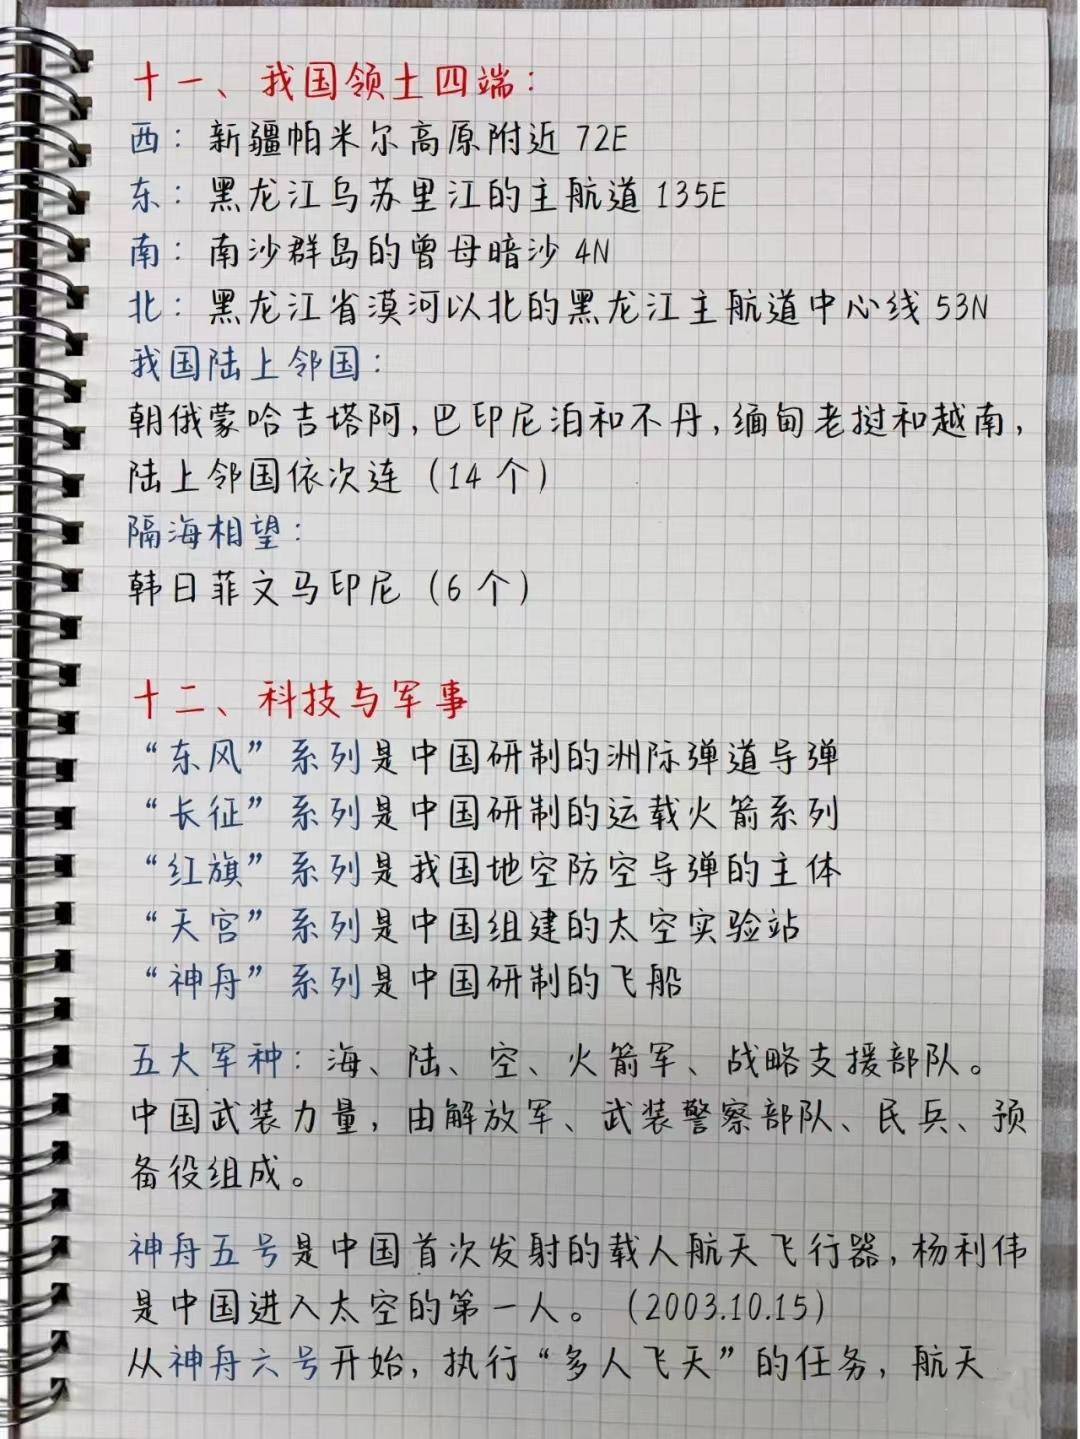 十一、我国领土四端：
西：新疆帕米尔高原附近 72E
东：黑龙江乌苏里江的主航道 135E
南：南沙群岛的曾母暗沙 4N
北：黑龙江省漠河以北的黑龙江主航道中心线 53N
我国陆上邻国：
朝俄蒙哈吉塔阿，巴印尼泊和不丹，缅甸老挝和越南，
陆上邻国依次连（14个）
隔海相望：
韩日菲文马印尼（6个）
十二、科技与军事
“东风”系列是中国研制的洲际弹道导弹
“长征”系列是中国研制的运载火箭系列
“红旗”系列是我国地空防空导弹的主体
“天宫”系列是中国组建的太空实验站
“神舟”系列是中国研制的飞船
五大军种：海、陆、空、火箭军、战略支援部队。
中国武装力量，由解放军、武装警察部队、民兵、预
备役组成。
神舟五号是中国首次发射的载人航天飞行器，杨利伟
是中国进入太空的第一人。（2003.10.15）
从神舟六号开始，执行“多人飞天”的任务，航天